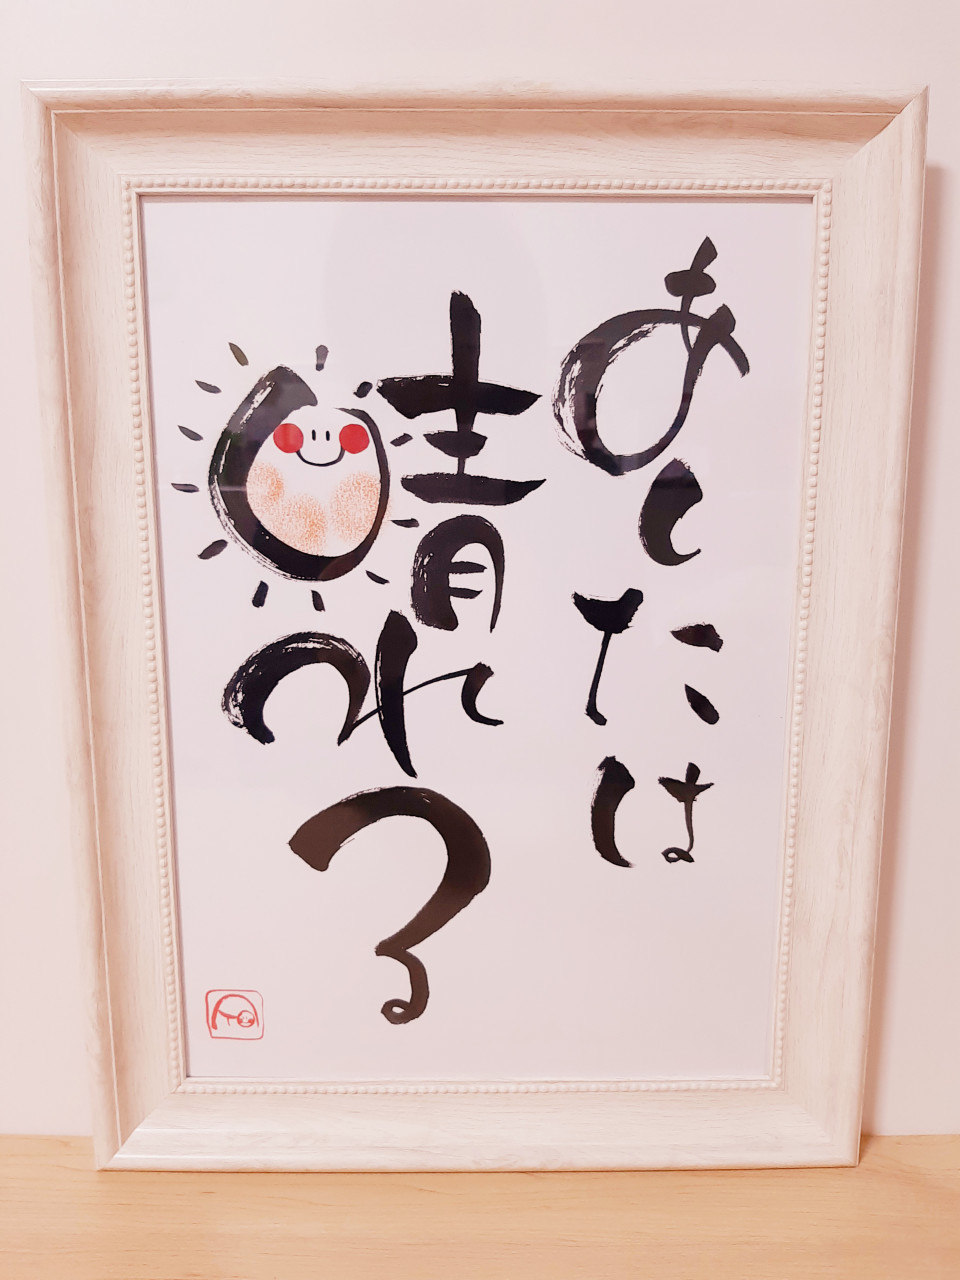 あしたは
晴れる